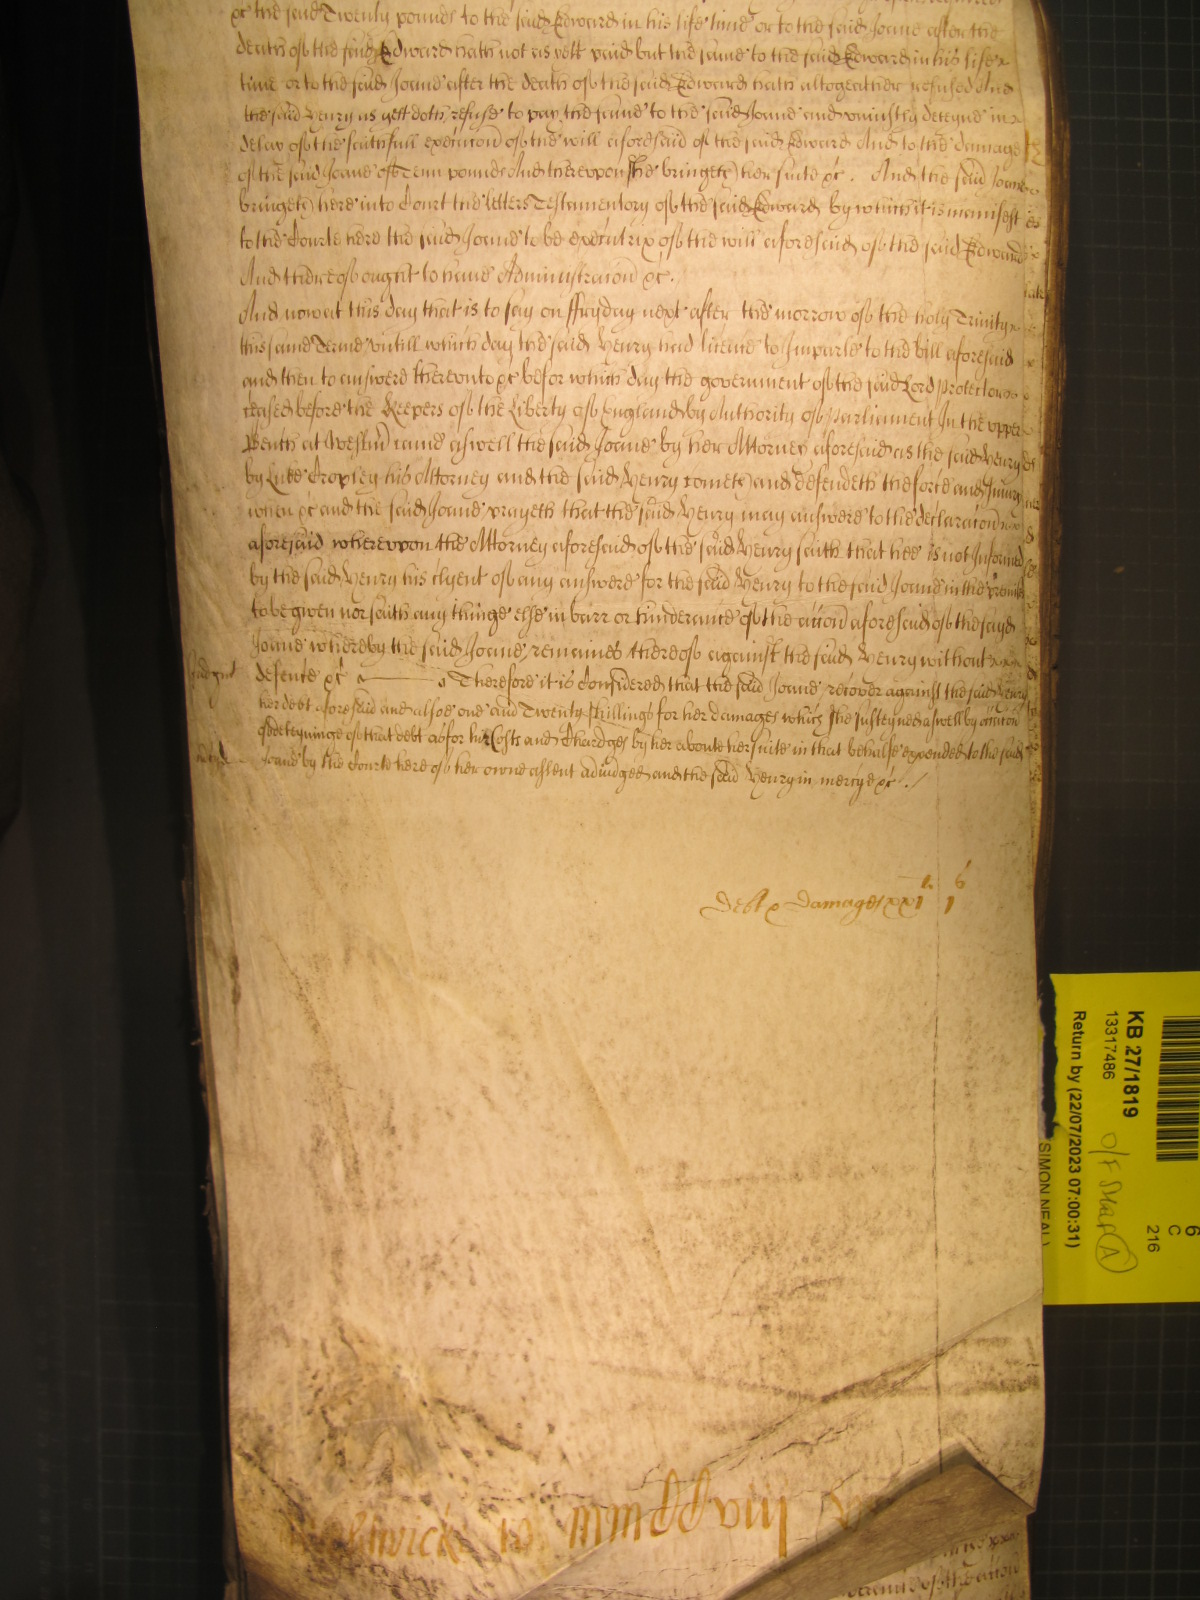 &c the said Twenty pounds to the said Edward in his life time or to the said Joane after the
death of the said Edward hath not as yett paid but the same to the said Edward in his life
time or to the said Joane after the death of the said Edward hath altogeather refused And
the said Henry as yett doth refuse to pay the same to the said Joane and uniustly deteyne in
delay of the faithfull execucōn of the will aforesaid of the said Edward And to the damage
of the said Joane of Tenn pounds And thereupon she bringeth her suite &c. And the said Joane
bringeth here into Court the letters Testamentory of the said Edward by which it is manifest
to the Courte here the said Joane to be executrix of the will aforesaid of the said Edward
And thereof ought to have Administracōn &c.
And now at this day that is to say on ffryday next after the morrow of the holy Trinity
this same Terme untill which day the said Henry had licence to Imparle to the bill aforesaid
and then to answere thereunto &c before which day the government of the said Lord Protector
ceased before the Keepers of the Liberty of England by Authority of Parliament In the upper
Bench at Westm̄ came aswell the said Joane by her Attorney aforesaid as the said Henry
by Luke Cropley his Attorney and the said Henry cometh and defendeth the force and Iniury
when &c and the said Joane prayeth that the said Henry may answere to the declaracōn
aforesaid whereupon the Attorney aforesaid of the said Henry saith that hee is not Informed
by the said Henry his clyent of any answere for the said Henry to the said Joane in the premiss
to be given nor saith any thinge else in barr or hinderance of the accōn aforesaid of the said
Joane whereby the said Joane remaines thereof against the said Henry without
defence &c Therefore it is Considered that the said Joane recover against the said Henry
her debt aforesaid and alsoe one and Twenty shillings for her damages which she susteyned aswell by occasion
of deteyninge of that debt as for her Costs and Chardges by her aboute her suite in that behalfe expended to the said
Joane by the Courte here of her owne assent adiudged and the said Henry in mercye &c.
Judgmt
Debt & damages xxi l i s
mmddviij
KB 27/1819
13317486
Return by (22/07/2023 07:00:31)
SIMON NEAL
O/F Staff A
6
C
216